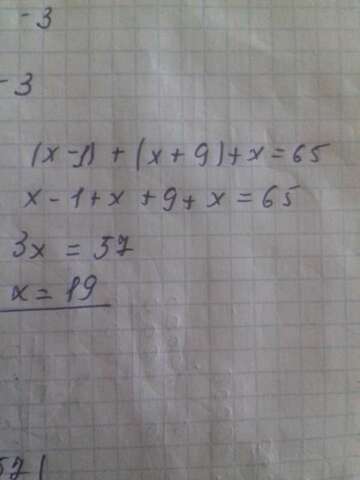 -3
-3
(x-1) + (x+9)+x=65
x-1+x+9+x=65
3x=57
x=19
57